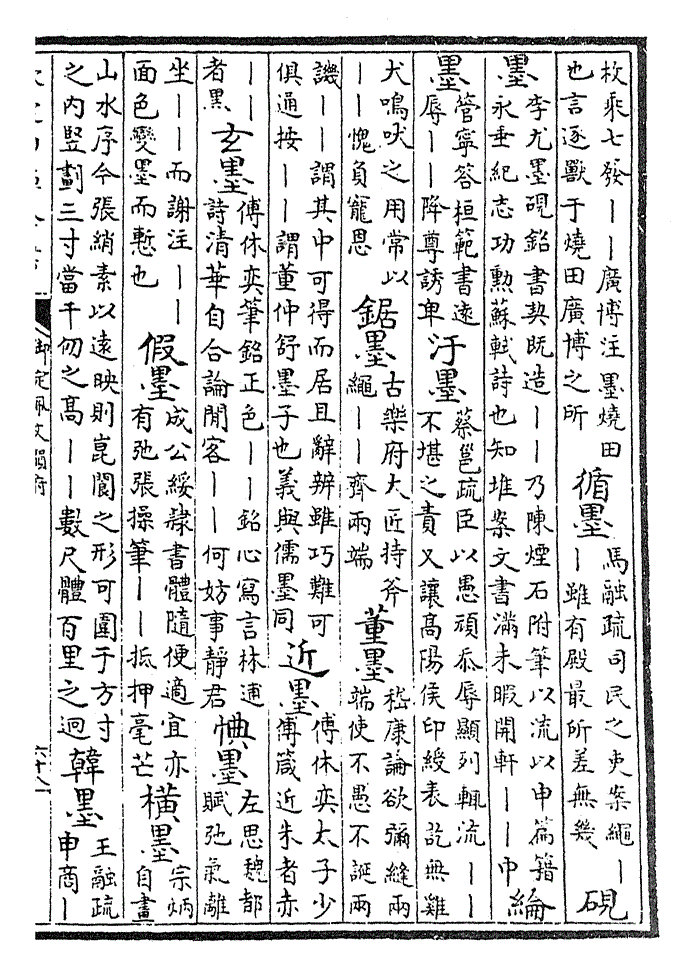 枚乘七發｜｜廣博注墨燒田
也言逐獸于燒田廣博之所
循墨
馬融疏司民之吏案繩｜
｜雖有殿最所差無幾
硯
墨
李尤墨硯銘書契既造｜｜乃陳煙石附筆以流以申篇籍
永垂紀志功勲蘇軾詩也知堆案文書滿未暇開軒｜｜中
綸
墨
管寧答桓範書遠
辱｜｜降尊誘卑
汙墨
蔡邕疏臣以愚頑忝辱顯列輒流｜｜
不堪之責又讓高陽侯印綬表訖無雞
犬鳴吠之用常以
｜｜愧負寵恩
鋸墨
古樂府大匠持斧
繩｜｜齊兩端
董墨
嵇康論欲彌縫兩
端使不愚不誕兩
譏｜｜謂其中可得而居且辭辨雖巧難可
俱通按｜｜謂董仲舒墨子也義與儒墨同
近墨
傅休奕太子少
傅箴近朱者赤
｜｜
者黑
玄墨
傅休奕筆銘正色｜｜銘心寫言林逋
詩清華自合論閒客｜｜何妨事靜君
㥏墨
左思魏都
賦弛氣離
坐｜｜而謝注｜｜
面色變墨而慙也
假墨
成公綏隸書體隨便適宜亦
有弛張操筆｜｜抵押毫芒
橫墨
宗炳
自畫
山水序今張綃素以遠映則崑閬之形可圍于方寸
之内竪劃三寸當千仞之高｜｜數尺體百里之迥
韓墨
王融疏
申商｜
御定佩文韻府
六十八